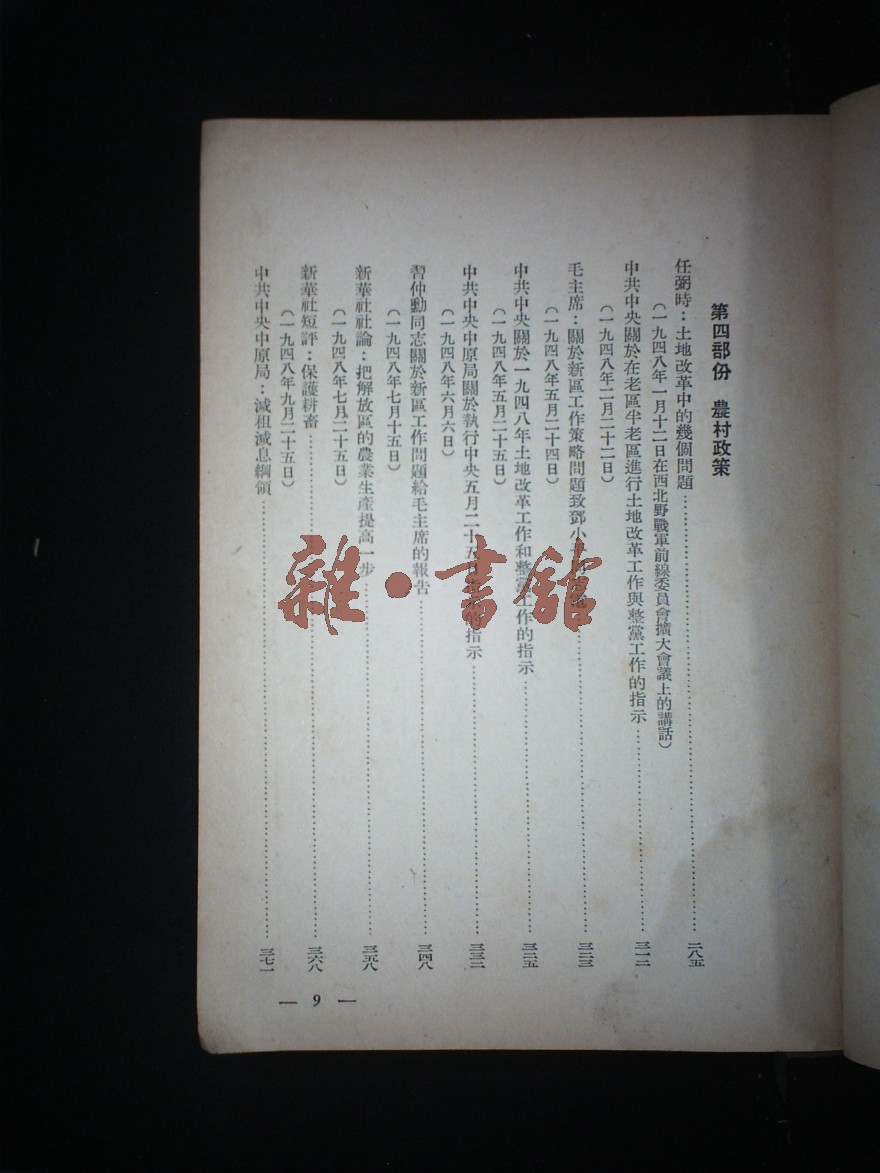 第四部份　農村政策
任弼時：土地改革中的幾個問題……二八五
（一九四八年一月十二日在西北野戰軍前線委員會擴大會議上的講話）
中共中央關於在老區半老區進行土地改革工作與整黨工作的指示……三一二
（一九四八年二月二十二日）
毛主席：關於新區工作策略問題致鄧小……三二三
（一九四八年五月二十四日）
中共中央關於一九四八年土地改革工作和整黨工作的指示……三二五
（一九四八年五月二十五日）
中共中央中原局關於執行中央五月二十五日指示的指示……三三三
（一九四八年六月六日）
習仲勳同志關於新區工作問題給毛主席的報告……三四八
（一九四八年七月十五日）
新華社社論：把解放區的農業生產提高一步……三五八
（一九四八年七月二十五日）
新華社短評：保護耕畜……三六八
（一九四八年九月二十五日）
中共中央中原局：減租減息綱領……三七一
— 9 —
雜·書館